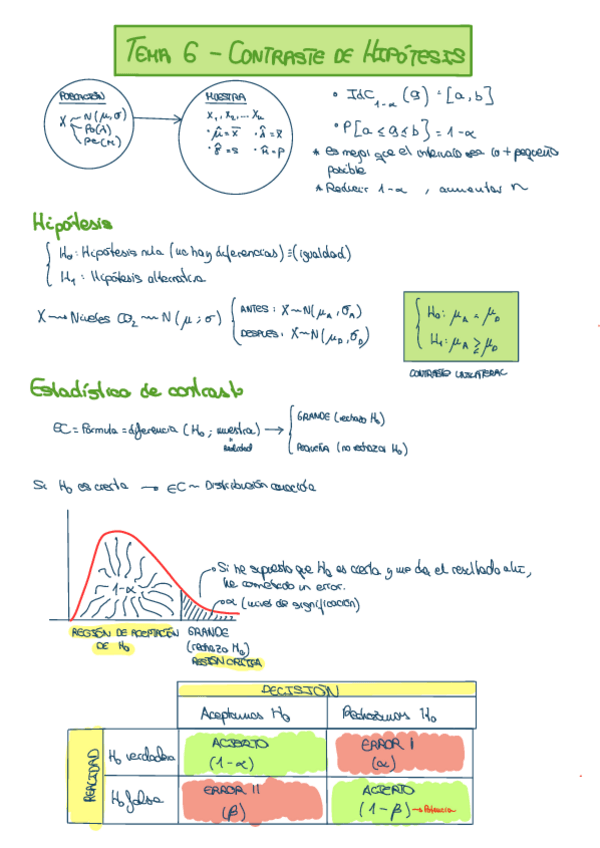 TEMA 6 - CONTRASTE DE HIPÓTESIS
POBLACIÓN
X N(μ,σ)
Po(λ)
MUESTRA
x₁, x₂, ... xₙ
· μ̂ = x̄ · λ̂ = x̄
· σ̂ = s · π̂ = p
· IdC 1-α (θ) = [a, b]
· P[a ≤ θ ≤ b] = 1-α
* Es mejor que el intervalo sea lo + pequeño
posible
* Reducir 1-α , aumentar n
Hipótesis
H₀ : Hipótesis nula (no hay diferencias) ≡ (igualdad)
H₁ : Hipótesis alternativa
X ~ Niveles CO₂ ~ N(μ ; σ)
ANTES : X ~ N(μA, σA)
DESPUES : X ~ N(μD, σD)
H₀ : μA = μD
H₁ : μA ≥ μD
CONTRASTE UNILATERAL
Estadístico de contraste
EC = Fórmula = diferencia (H₀ ; muestra) →
realidad
GRANDE (rechazo H₀)
PEQUEÑA (no rechazar H₀)
Si H₀ es cierta → EC ~ Distribución conocida
1-α
Si he supuesto que H₀ es cierta y me da el resultado ahí,
he cometido un error.
α (nivel de significación)
REGIÓN DE ACEPTACIÓN
DE H₀
GRANDE
(rechazo H₀)
REGIÓN CRÍTICA
DECISIÓN
Aceptamos H₀ Rechazamos H₀
REALIDAD
H₀ verdadera
ACIERTO
(1-α)
ERROR I
(α)
H₀ falsa
ERROR II
(β)
ACIERTO
(1-β) → Potencia